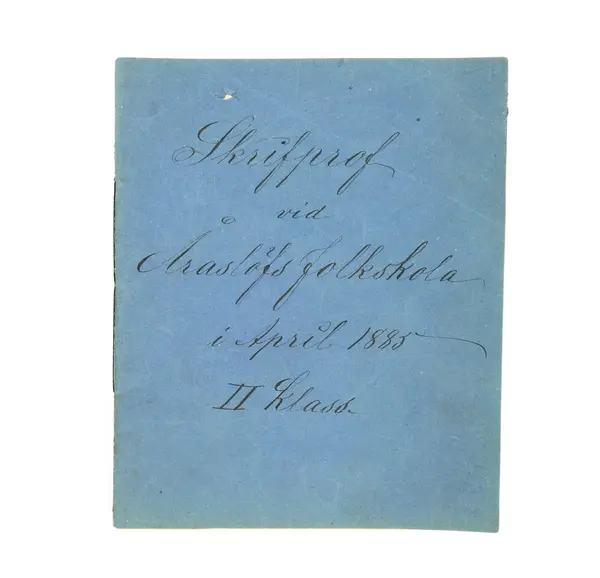 Skrifprof
vid
Åraslöfs folkskola
i April 1885
II Klass.